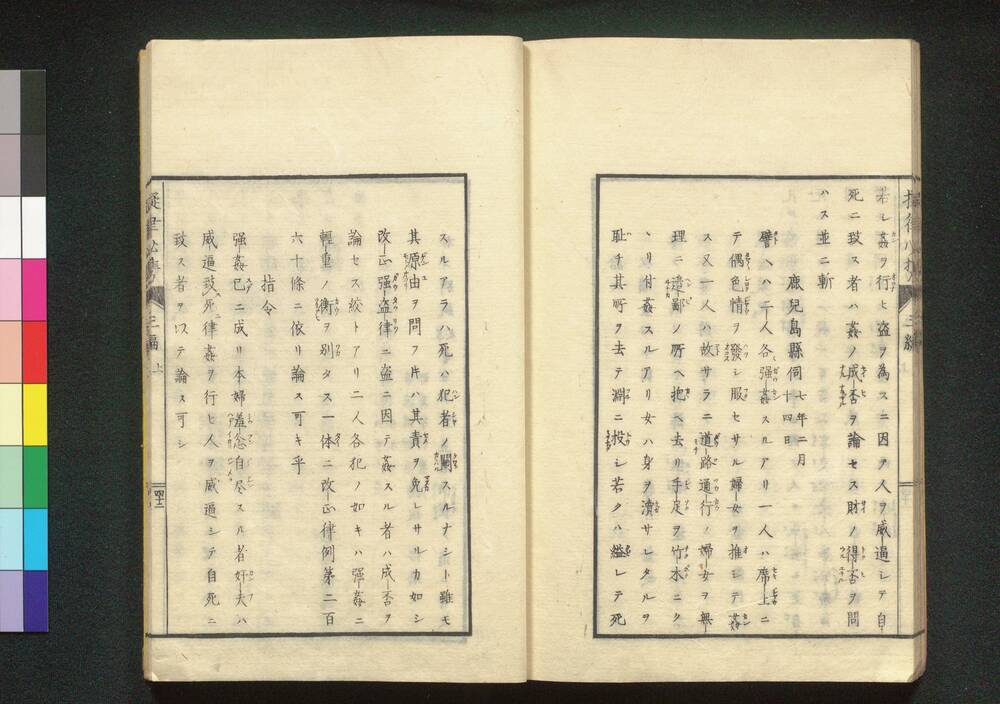 若シ姦ヲ行ヒ盗ヲ為スニ因テ人ヲ威逼シテ自
死ニ致ス者ハ姦ノ成否ヲ論セス財ノ得否ヲ問
ハス並ニ斬
鹿児島縣伺 七年二月十四日
譬ヘハ二人各強姦スルアリ一人ハ席上ニ
テ偶色情ヲ發シ服セサル婦女ヲ推シテ姦
ス又一人ハ故サラニ道路通行ノ婦女ヲ無
理ニ邊鄙ノ所ヘ抱ヘ去リ手足ヲ竹木ニク
ヽリ付姦スルアリ女ハ身ヲ瀆サレタルヲ
耻チ其所ヲ去テ淵ニ投シ若クハ縊レテ死
三編
スルアラハ死ハ犯者ノ關スルナシト雖モ
其原由ヲ問フ片ハ其責ヲ免レサルカ如シ
改正強盗律ニ盗ニ因テ姦スル者ハ成否ヲ
論セス絞トアリ二人各犯ノ如キハ強姦ニ
輕重ノ衡ヲ別タス一体ニ改正律例第二百
六十條ニ依リ論ス可キ乎
指令
強姦已ニ成リ本婦羞忿自尽スル者奸夫ハ
威逼致死律姦ヲ行ヒ人ヲ威逼シテ自死ニ
致ス者ヲ以テ論ス可シ
三編 上